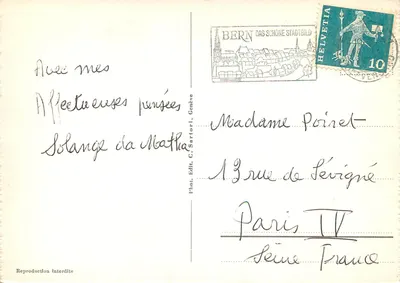 Avec mes
Affectueuses pensées
Solange da Matha
BERN DAS SCHÖNE STADTBILD
HELVETIA
10
Phot. Edit. C. Sartori, Genève
Madame Poiret
13 rue de Sévigné
Paris IV
Seine France
Reproduction interdite